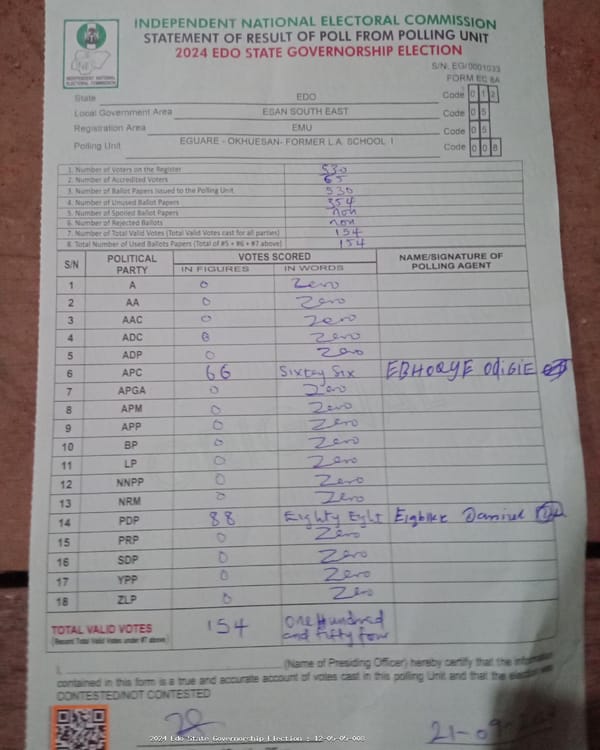 INDEPENDENT NATIONAL ELECTORAL COMMISSION
STATEMENT OF RESULT OF POLL FROM POLLING UNIT
2024 EDO STATE GOVERNORSHIP ELECTION
INDEPENDENT NATIONAL
ELECTORAL COMMISSION
S/N: EG/0001033
FORM EC 8A
State EDO Code 0 1 2
Local Government Area ESAN SOUTH EAST Code 0 5
Registration Area EMU Code 0 5
Polling Unit EGUARE - OKHUESAN- FORMER L.A. SCHOOL I Code 0 0 8
1. Number of Voters on the Register 530
2. Number of Accredited Voters 65
3. Number of Ballot Papers Issued to the Polling Unit 530
4. Number of Unused Ballot Papers 354
5. Number of Spoiled Ballot Papers non
6. Number of Rejected Ballots non
7. Number of Total Valid Votes (Total Valid Votes cast for all parties) 154
8. Total Number of Used Ballots Papers (Total of #5 + #6 + #7 above) 154
S/N POLITICAL PARTY VOTES SCORED NAME/SIGNATURE OF POLLING AGENT
IN FIGURES IN WORDS
1 A 0 Zero
2 AA 0 Zero
3 AAC 0 Zero
4 ADC 0 Zero
5 ADP 0 Zero
6 APC 66 Sixtey Six EBHOQYE Odigie
7 APGA 0 Zero
8 APM 0 Zero
9 APP 0 Zero
10 BP 0 Zero
11 LP 0 Zero
12 NNPP 0 Zero
13 NRM 0 Zero
14 PDP 88 Eighty Eyht
15 PRP 0 Zero
16 SDP 0 Zero
17 YPP 0 Zero
18 ZLP 0 Zero
TOTAL VALID VOTES 154 One Hundred
(Record Total Valid Votes under #7 above) and fifty four
I, (Name of Presiding Officer) hereby certify that the
contained in this form is a true and accurate account of votes cast in this polling Unit and that the election was
CONTESTED/NOT CONTESTED
21-09-
2024 Edo State Governorship Election : 12-05-05-008